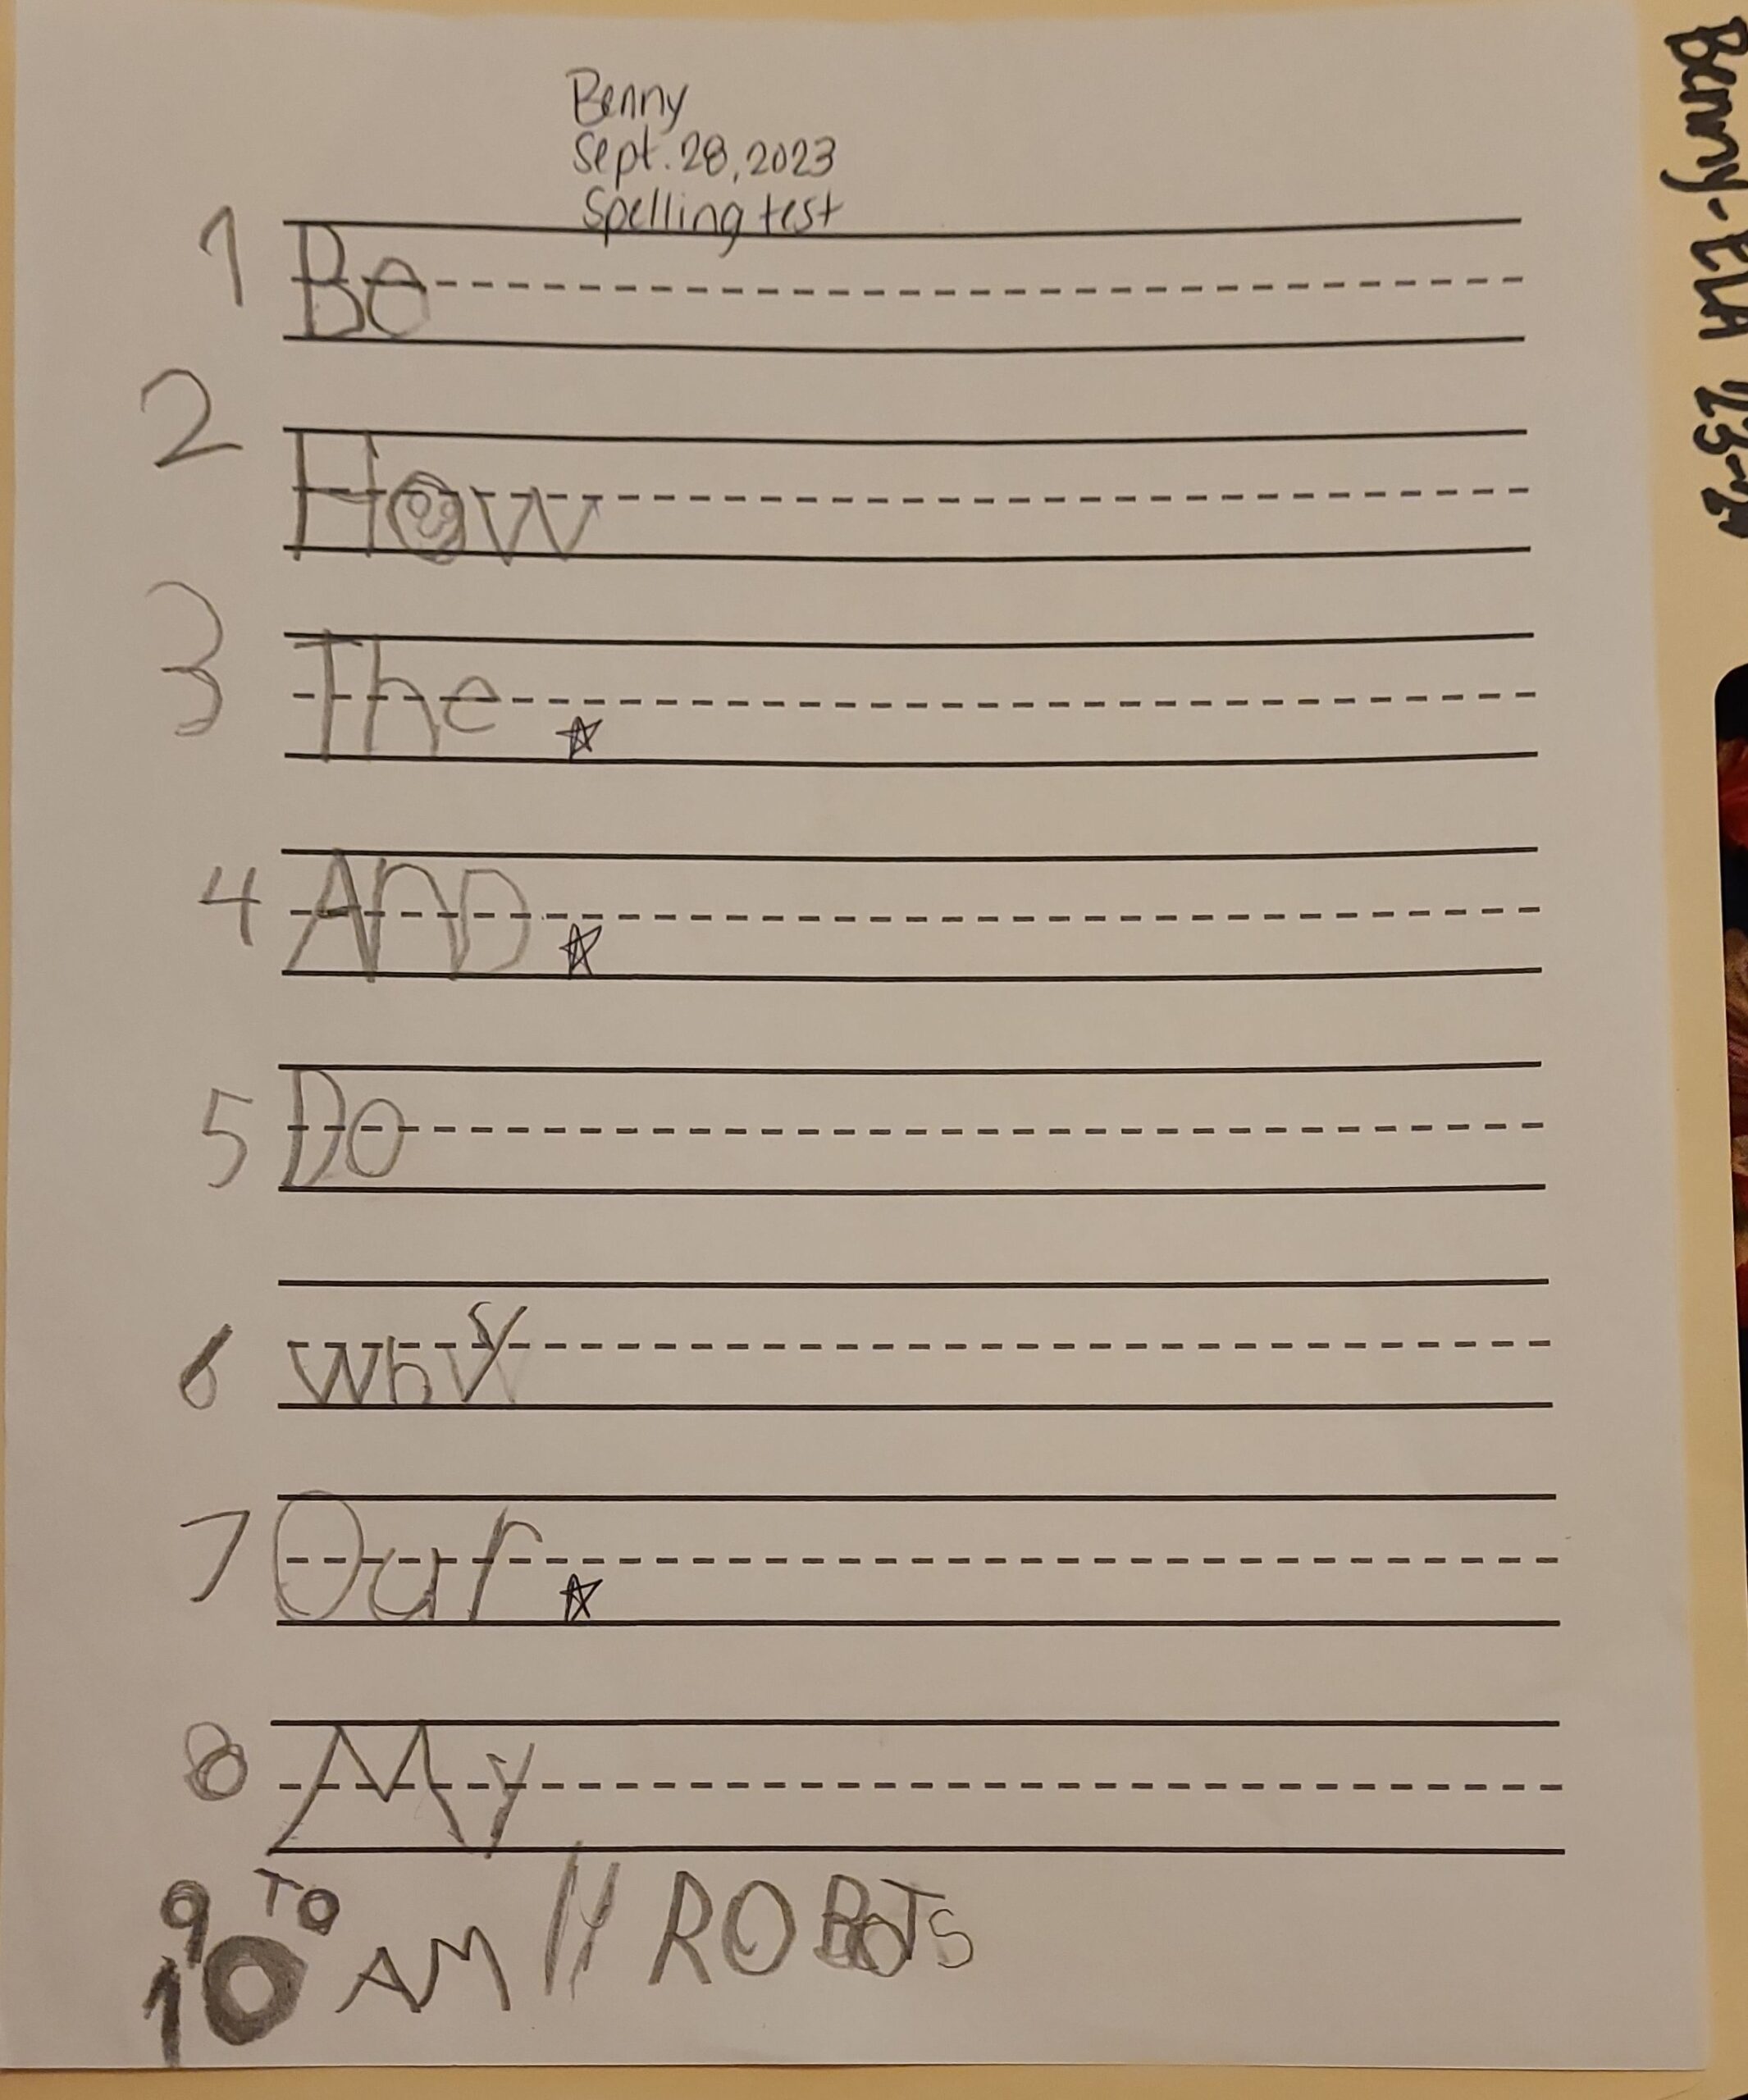 Benny
Sept. 28, 2023
Spelling test
1 Be
2 How
3 The
4 AnD
5 Do
6 why
7 Our
8 My
9 TO
10 AM 11 ROBoTs
Benny-ELA '23-'24